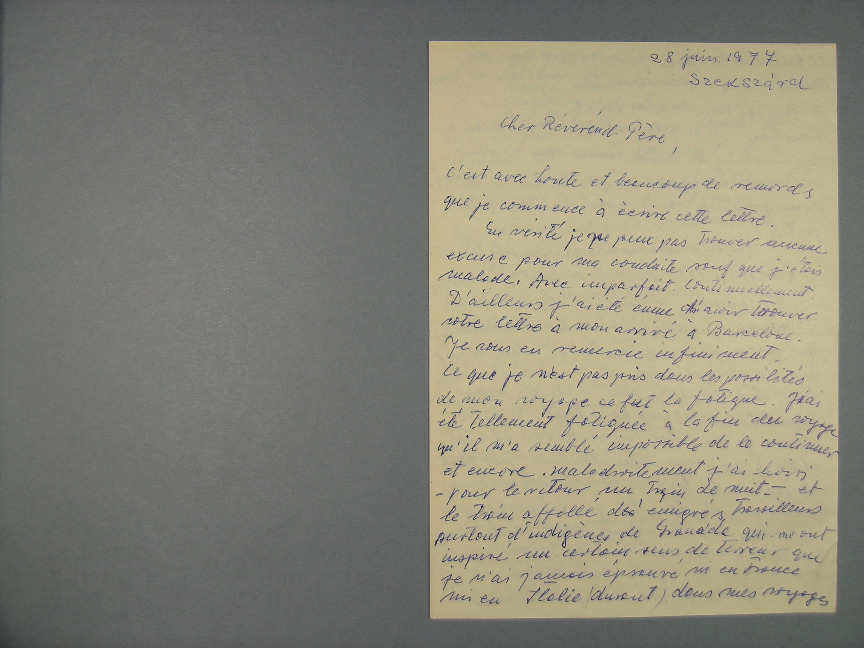 28 juin 1977
Szekszárd
Cher Révérend Père,
C'est avec honte et beaucoup de remords
que je commence à écrire cette lettre.
En vérité je ne peux pas trouver aucune
excuse pour ma conduite sauf que j'étais
malade. Avec imparfait. Continuellement.
D'ailleurs j'ai été émue d'avoir trouver
votre lettre à mon arrivé à Barcelone.
Je vous en remercie infiniment.
Ce que je n'est pas pris dans les possilités
de mon voyage ce fut la fatigue. J'ai
été tellement fatiguée à la fin du voyage
qu'il m'a semblé impossible de le continuer
et encore. maladroitement j'ai choisi
- pour le retour un train de nuit - et
le train affollé des émigrés, travailleurs
surtout d'indigènes de Granada qui m'ont
inspiré un certain sens de terreur que
je n'ai jamais éprouvé ni en France
ni en Italie (durant) dans mes voyages